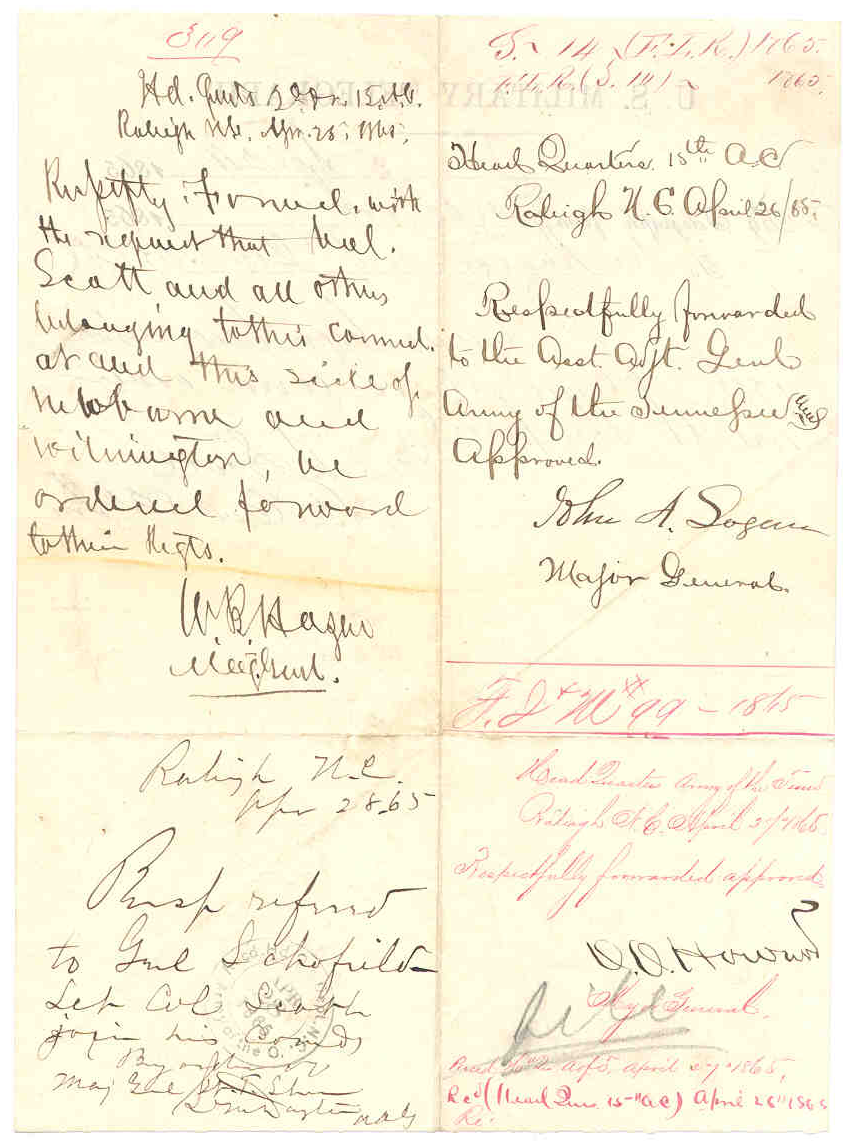 349
Hd. Qurts 2d Dn. 15. A.C.
Raleigh N.C. Apr. 25, 1865,
Forwd. with
the request that Col.
Scott and all others
belonging to this comnd.
at and this side of
Newberne and
Wilmington, be
ordered forward
to their Regts.
W. B. Hazen
Maj. Genl.
Raleigh N.C.
Apr 28. 65
Resp referred
to Genl Schofield
Let Col Scott
join his comds
By order of
Maj Genl W. T. Sher
AAG
S. 14 (F.I.R.) 1865.
(S. 14) 1865.
U. S. MILITARY TELEGRAPH
Head Quarters. 15th A.C.
Raleigh N.C. April 26/65,
Respectfully forwarded
to the Asst. Adjt. Genl
Army of the Tennessee
Approved.
John A. Logan
Major General.
99 – 1865
Head Quarters Army of the Tenn
Raleigh N.C. April 27th 1865.
Respectfully forwarded approved
O. O. Howard
Maj General.
file
April 27th 1865,
Recd (Head Qurs. 15th AC) April 26th 1865